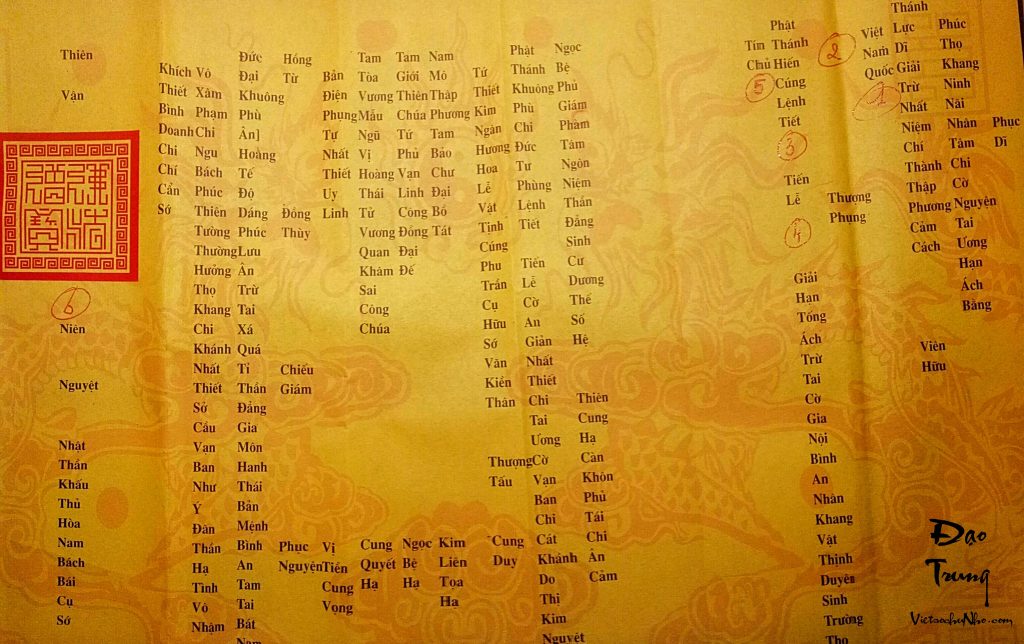 Phục Dĩ
Phúc Thọ Khang Ninh Nãi Nhân Tâm Chi Cờ Nguyện Tai Ương Hạn Ách Bằng
Thánh Lực Dĩ Giải Trừ Nhất Niệm Chí Thành Thập Phương Cảm Cách Viên Hữu
1
Việt Nam Quốc
2
Thượng Phụng
Phật Thánh Hiến Cúng Lệnh Tiết
3
Tiến Lễ
4
Giải Hạn Tống Ách Trừ Tai Cờ Gia Nội Bình An Nhân Khang Vật Thịnh Duyên Sinh Trường Thọ
Tín Chủ
5
Ngọc Bệ Phủ Giám Phàm Tâm Ngôn Niệm Thần Đẳng Sinh Cư Dương Thế Số Hệ Thiên Cung Hạ Càn Khôn Phủ Tái Chi Ân Cảm
Phật Thánh Khuông Phù Chi Đức Tư Phùng Lệnh Tiết Tiến Lễ Cờ An Giản Nhất Thiết Chi Tai Ương Cờ Vạn Ban Chi Cát Khánh Do Thị Kim Nguyệt
Tứ Thiết Kim Ngân Hương Hoa Lễ Vật Tịnh Cúng Phu Trần Cụ Hữu Sớ Văn Kiền Thân Thượng Tấu Cung Duy
Nam Mô Thập Phương Tam Bảo Chư Đại Bồ Tát Kim Liên Toạ Hạ
Tam Giới Thiên Chúa Tứ Phủ Vạn Linh Công Đồng Đại Đế Ngọc Bệ Hạ
Tam Tòa Vương Mẫu Ngũ Vị Hoàng Thái Tử Vương Quan Khâm Sai Công Chúa Cung Quyết Hạ
Bản Điện Phụng Tự Nhất Thiết Uy Linh Vị Tiền Cung Vọng
Hồng Từ Đồng Thùy Chiếu Giám Phục Nguyện
Đức Đại Khuông Phù Ân] Hoằng Tế Độ Dáng Phúc Lưu Ân Trừ Tai Xá Quá Tỉ Thần Đẳng Gia Môn Hanh Thái Bản Mệnh Bình An Tam Tai Bát Nạn
Vô Xâm Phạm Chi Ngu Bách Phúc Thiên Tường Thường Hưởng Thọ Khang Chi Khánh Nhất Thiết Sở Cầu Vạn Ban Như Ý Đàn Thần Hạ Tình Vô Nhậm
Khích Thiết Bình Doanh Chi Chí Cẩn Sớ
Thiên Vận
6
Niên Nguyệt Nhật Thần Khấu Thủ Hòa Nam Bách Bái Cụ Sớ
Đạo
Trung
VietsochuNho.com